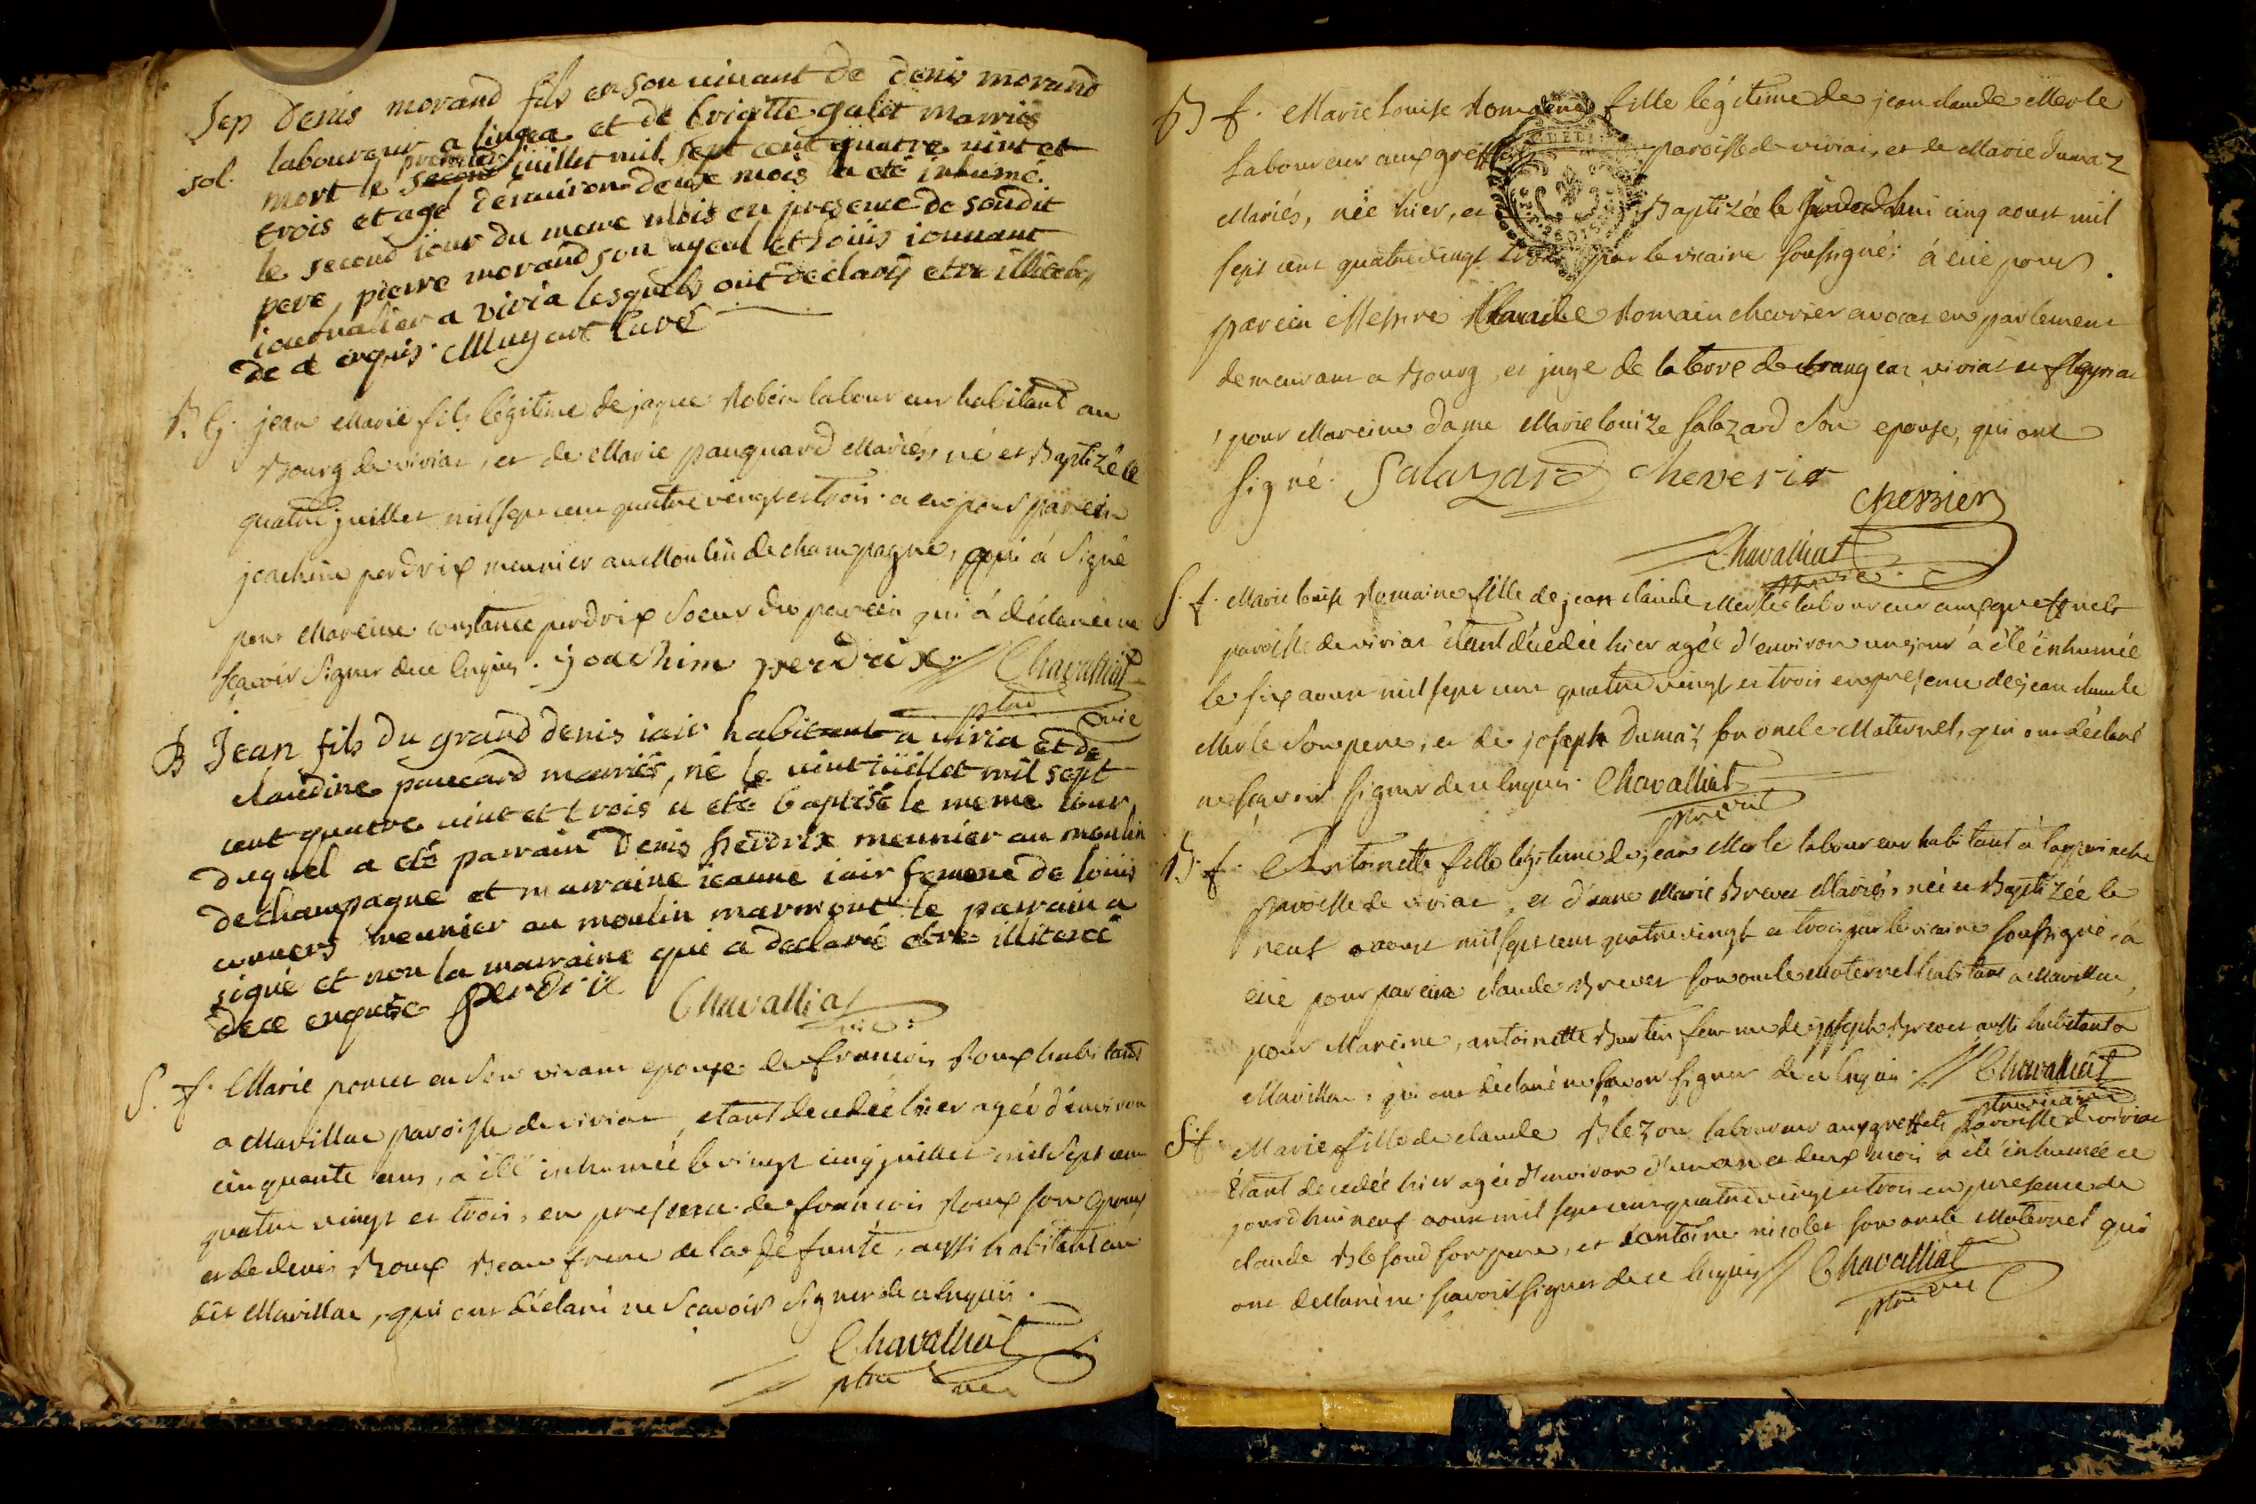 Sep Denis morand fils en son vivant de denis morand
sol. laboureur a lingea et de brigitte galet marriés
mort le second premier juillet mil sept cent quatre vint et
trois et agé denuiron deux mois a eté inhumé
le second jour du meme mois en presence de soudit
pere, pierre morand son ayeul et loüis
journalier a viria lesquels ont declarés etre illiterés
de ce enquis. Muyart Curé
B. G. jean Marie fils légitime de jaque Robin laboureur habitant au
Bourg de viriat, et de Marie pauquard Mariés, né et Baptizé le
quatre juillet mil sept cent quatre vingt et trois. a eu pour parein
joachim perdrix meunier au Moulin de champagne, qui á Signé
pour Mareine constance perdrix Soeur du parein qui á déclaré ne
sçavoir Signer de ce Enquis. joachim perdrix Chavalliat
ptre vic
B Jean fils du grand denis iair habitant a viria et de
claudine paucard marriés, né le vint juillet mil sept
cent quatre vint et trois a eté baptisé le meme iour
duquel a eté parrain Denis perdrix meunier au moulin
de champagne et marraine ieanne iair femme de loüis
convers meunier au moulin marmont le parrain a
signé et non la marraine qui a declaré etre illiterée
de ce enquise perdrix Chavalliat
vic:
S. f. Marie poncet en Son vivant epouse de francois Roux habitant
a Mavillac paroisse de viriat, etant decedée hier agée d'environ
cinquante ans, a été inhumée le vingt cinq juillet mil Sept cent
quatre vingt et trois, en presence de francois Roux son Epoux
et de denis Roux Beau frere de la défunte, aussi habitant au
dit Mavillac, qui ont déclaré ne Scavoir Signer de ce Enquis.
Chavalliat
ptre vic
B f. Marie Louise Romaine fille légitime de jean claude Merle
Laboureur aux greffets paroisse de viriat, et de Marie dumaz
Mariés, née hier, et Baptizée le jourdhui cinq aoust mil
sept cent quatre vingt trois par le vicaire soussigné; á eue pour
parein Messire Claude Romain chevrier avocat en parlement
demeurant a Bourg, et juge de la terre de viriat et fleyriat
pour Mareine dame Marie Louize Salazard Son epouse, qui ont
Signé. Salazard cheverier
chevrier
Chavalliat
ptre vic.
S. f. Marie Louise Romaine fille de jean claude Merle laboureur aux greffets
paroisse de viriat étant décedée hier agée d'environ un jour á été inhumée
le six aoust mil sept cent quatre vingt et trois en presence de jean claude
Merle Son pere, et de joseph dumaz son oncle Maternel, qui ont déclaré
ne sçavoir Signer de ce Enquis. Chavalliat
ptre vic
B. f. Antoinette fille légitime de jean Merle laboureur habitant à
paroisse de viriat, et d'anne Marie Brevet Mariés, née et Baptizée le
neuf aoust mil sept cent quatre vingt et trois par le vicaire soussigné, à
eüe pour parein claude Brevet son oncle Maternel habitant a Mavillac,
pour Mareine, antoinette Burtin femme de joseph Brevet aussi habitant a
Mavillac, qui ont déclaré ne sçavoir Signer de ce Enquis. Chavalliat
ptre vicaire
S. f. Marie fille de claude Blezon laboureur aux greffets paroisse de viriat
étant decedée hier agée d'environ d'un an et deux mois a été inhumée ce
jourd'hui neuf aoust mil sept cent quatre vingt et trois en presence de
claude son pere, et d'antoine nicolet son oncle Maternel qui
ont declaré ne sçavoir Signer de ce Enquis Chavalliat
ptre vic